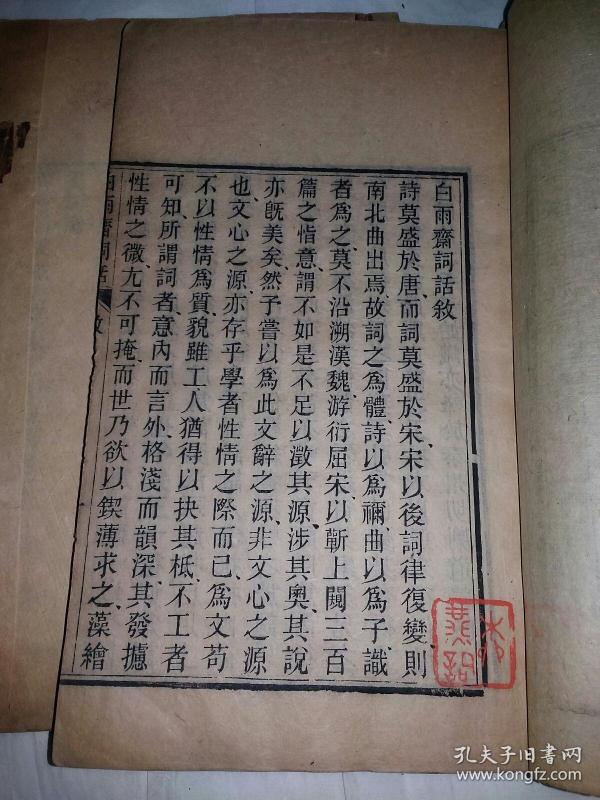 白雨齋詞話敘
詩莫盛於唐而詞莫盛於宋宋以後詞律復變則
南北曲出焉故詞之為體詩以為禰曲以為子識
者為之莫不沿溯漢魏游衍屈宋以蘄上闚三百
篇之恉意謂不如是不足以澂其源涉其奧其說
亦旣美矣然予嘗以為此文辭之源非文心之源
也文心之源亦存乎學者性情之際而已為文苟
不以性情為質貌雖工人猶得以抉其柢不工者
可知所謂詞者意內而言外格淺而韻深其發攄
性情之微尢不可掩而世乃欲以鍥薄求之藻繪
白雨齋詞話
敘
孔夫子旧书网
www.kongfz.com